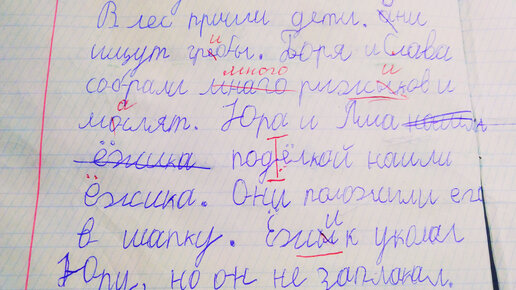 В лес пришли дети. Они
ищут грибы. Боря и Слава
собрали много рижиков и
маслят. Юра и Яша нашли
ёжика под ёлкой нашли
Ёжика. Они положили его
в шапку. Ёжик уколол
Юру, но он не заплакал.